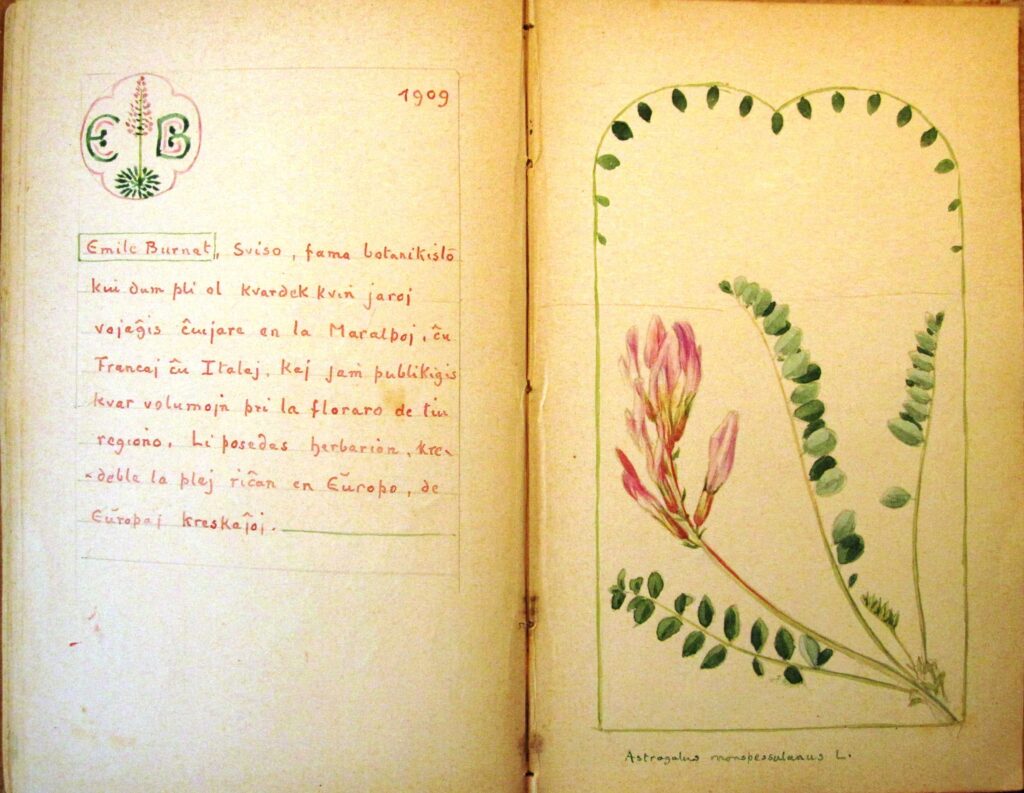 E B
1909
Emile Burnat, Sviso, fama botanikisto
kiu dum pli ol kvardek kvin jaroj
vojaĝis ĉiujare en la Maralpoj, ĉu
Francaj ĉu Italaj, kaj jam publikigis
kvar volumojn pri la floraro de tiu
regiono. Li posedas herbarion, kre-
-deble la plej riĉan en Eŭropo, de
Eŭropaj kreskaĵoj.
Astragalus monspessulanus L.